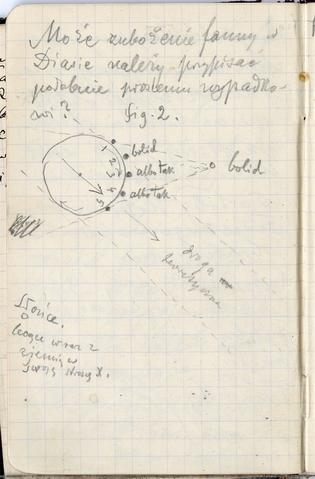 Może zubożenie fauny w
Diasie należy przypisać
podobnie prostemu wypadko-
wi?
fig. 2.
bolid
albo tak
albo tak
bolid
1
2
3
4
5
droga
Słońce.
wraz z
ziemią w
swoją stronę X.